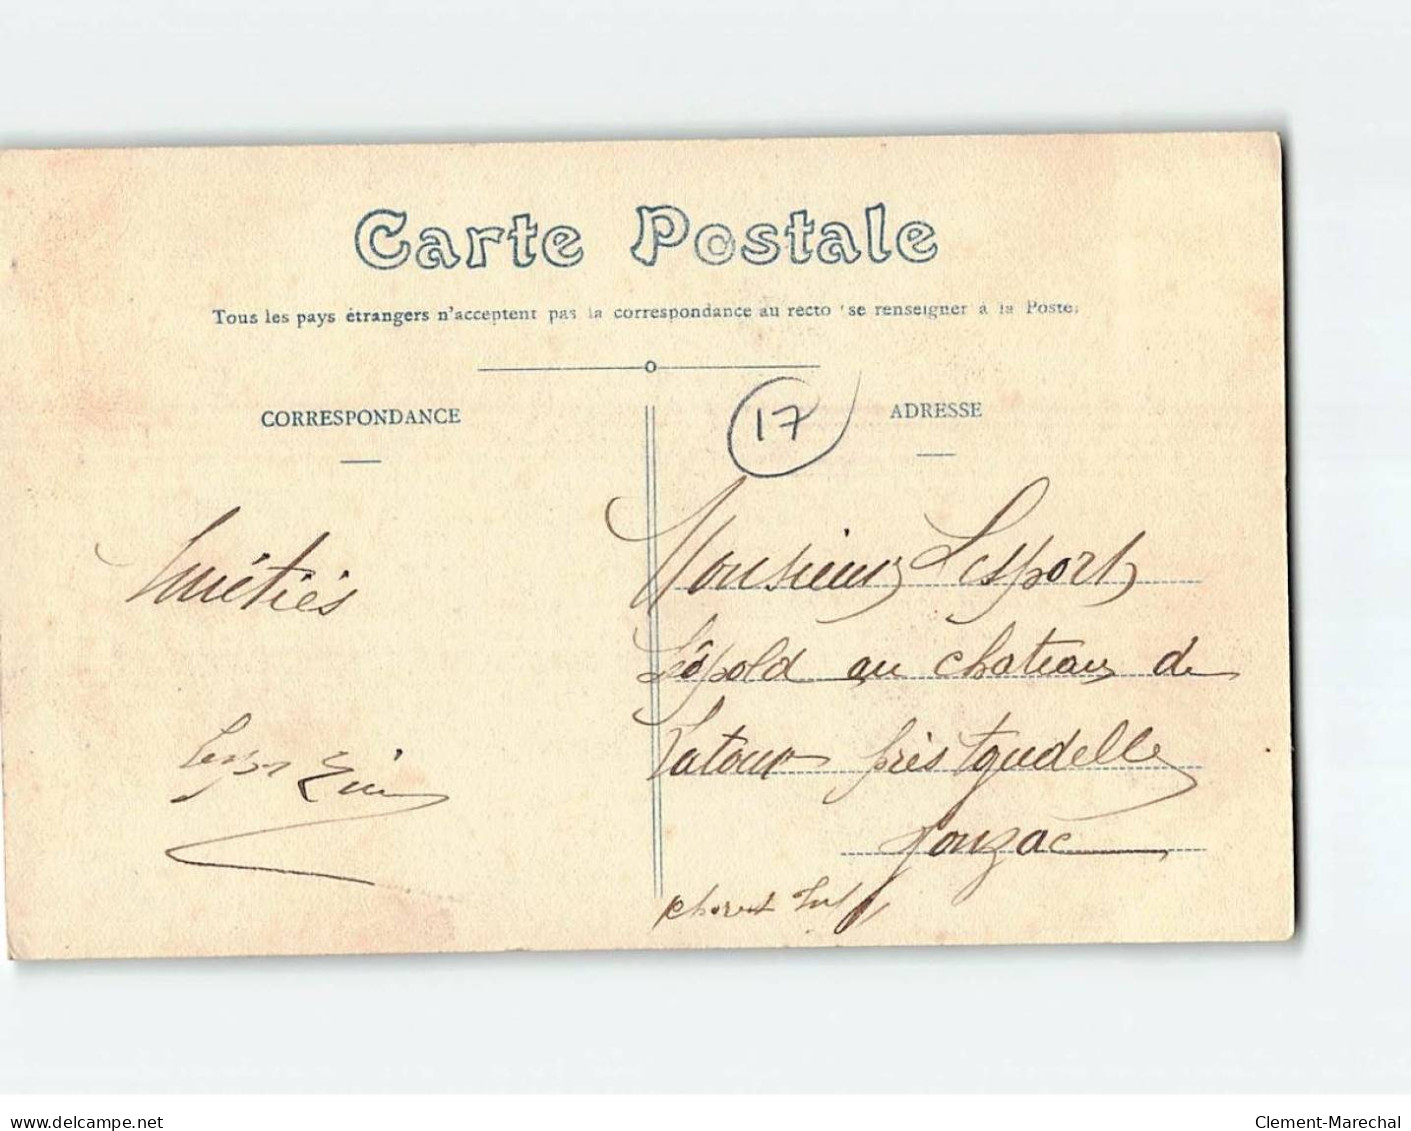 Carte Postale
Tous les pays étrangers n'acceptent pas la correspondance au recto (se renseigner à la Poste)
CORRESPONDANCE
ADRESSE
17
Monsieur Lesport
Léopold au chateau de
Latour près
Jonzac
delcampe.net
Clement-Marechal